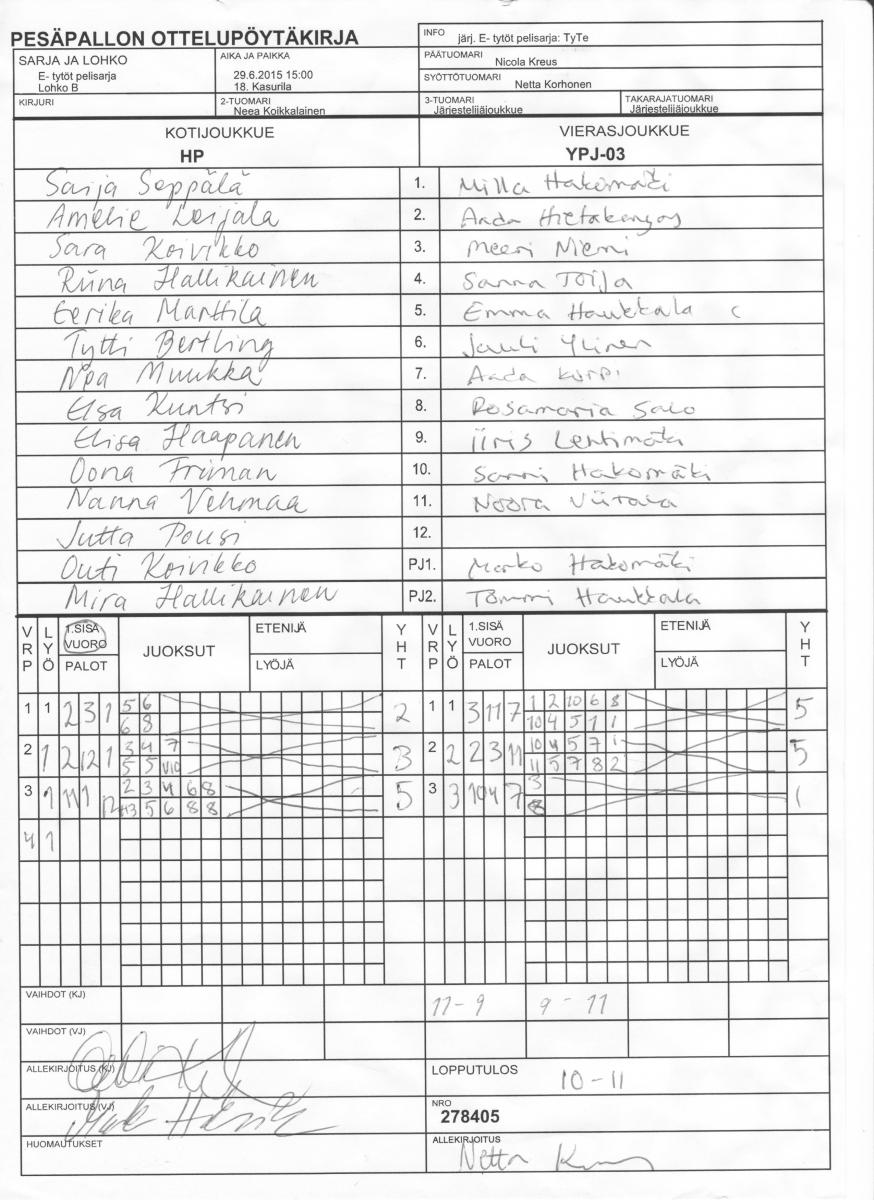 PESÄPALLON OTTELUPÖYTÄKIRJA
INFO järj. E- tytöt pelisarja: TyTe
SARJA JA LOHKO
E- tytöt pelisarja
Lohko B
AIKA JA PAIKKA
29.6.2015 15:00
18. Kasurila
PÄÄTUOMARI
Nicola Kreus
SYÖTTÖTUOMARI
Netta Korhonen
KIRJURI
2-TUOMARI
Neea Koikkalainen
3-TUOMARI
Järjestelijäjoukkue
TAKARAJATUOMARI
Järjestelijäjoukkue
KOTIJOUKKUE VIERASJOUKKUE
HP YPJ-03
Saija Seppälä 1. Milla Hakomäki
Amelie Leijala 2. Anda
Sara Koivikko 3. Meeri Niemi
Riina Hallikainen 4. Sanna Toija
Eerika Marttila 5. Emma Haukkala C
Tytti Bertling 6. Ylinen
Noa Muukka 7. Anda Korpi
Elsa Kuntsi 8. Rosamaria Salo
Elisa Haapanen 9. Iiris Lehtimäki
Oona Friman 10. Sanni Hakomäki
Nanna Vehmaa 11. Noora Viitala
Jutta Pousi 12.
Outi Koivikko PJ1. Marko Hakomäki
Mira Hallikainen PJ2. Tommi Haukkala
VRP LYÖ 1.SISÄ VUORO PALOT JUOKSUT ETENIJÄ LYÖJÄ YHT VRP LYÖ 1.SISÄ VUORO PALOT JUOKSUT ETENIJÄ LYÖJÄ YHT
1 1 2 3 1 5 6 2 1 1 3 11 7 1 2 10 6 8 5
6 8 10 4 5 1 1
2 1 2 12 1 3 4 7 3 2 2 2 3 11 10 4 5 7 1 5
5 5 V10 11 5 7 8 2
3 1 11 1 12 2 3 4 6 8 5 3 3 10 4 7 3 1
5 6 8 8 8
4 1
VAIHDOT (KJ) 11-9 9-11
VAIHDOT (VJ)
ALLEKIRJOITUS (KJ)
LOPPUTULOS 10-11
ALLEKIRJOITUS (VJ)
NRO
278405
HUOMAUTUKSET
ALLEKIRJOITUS
Netta